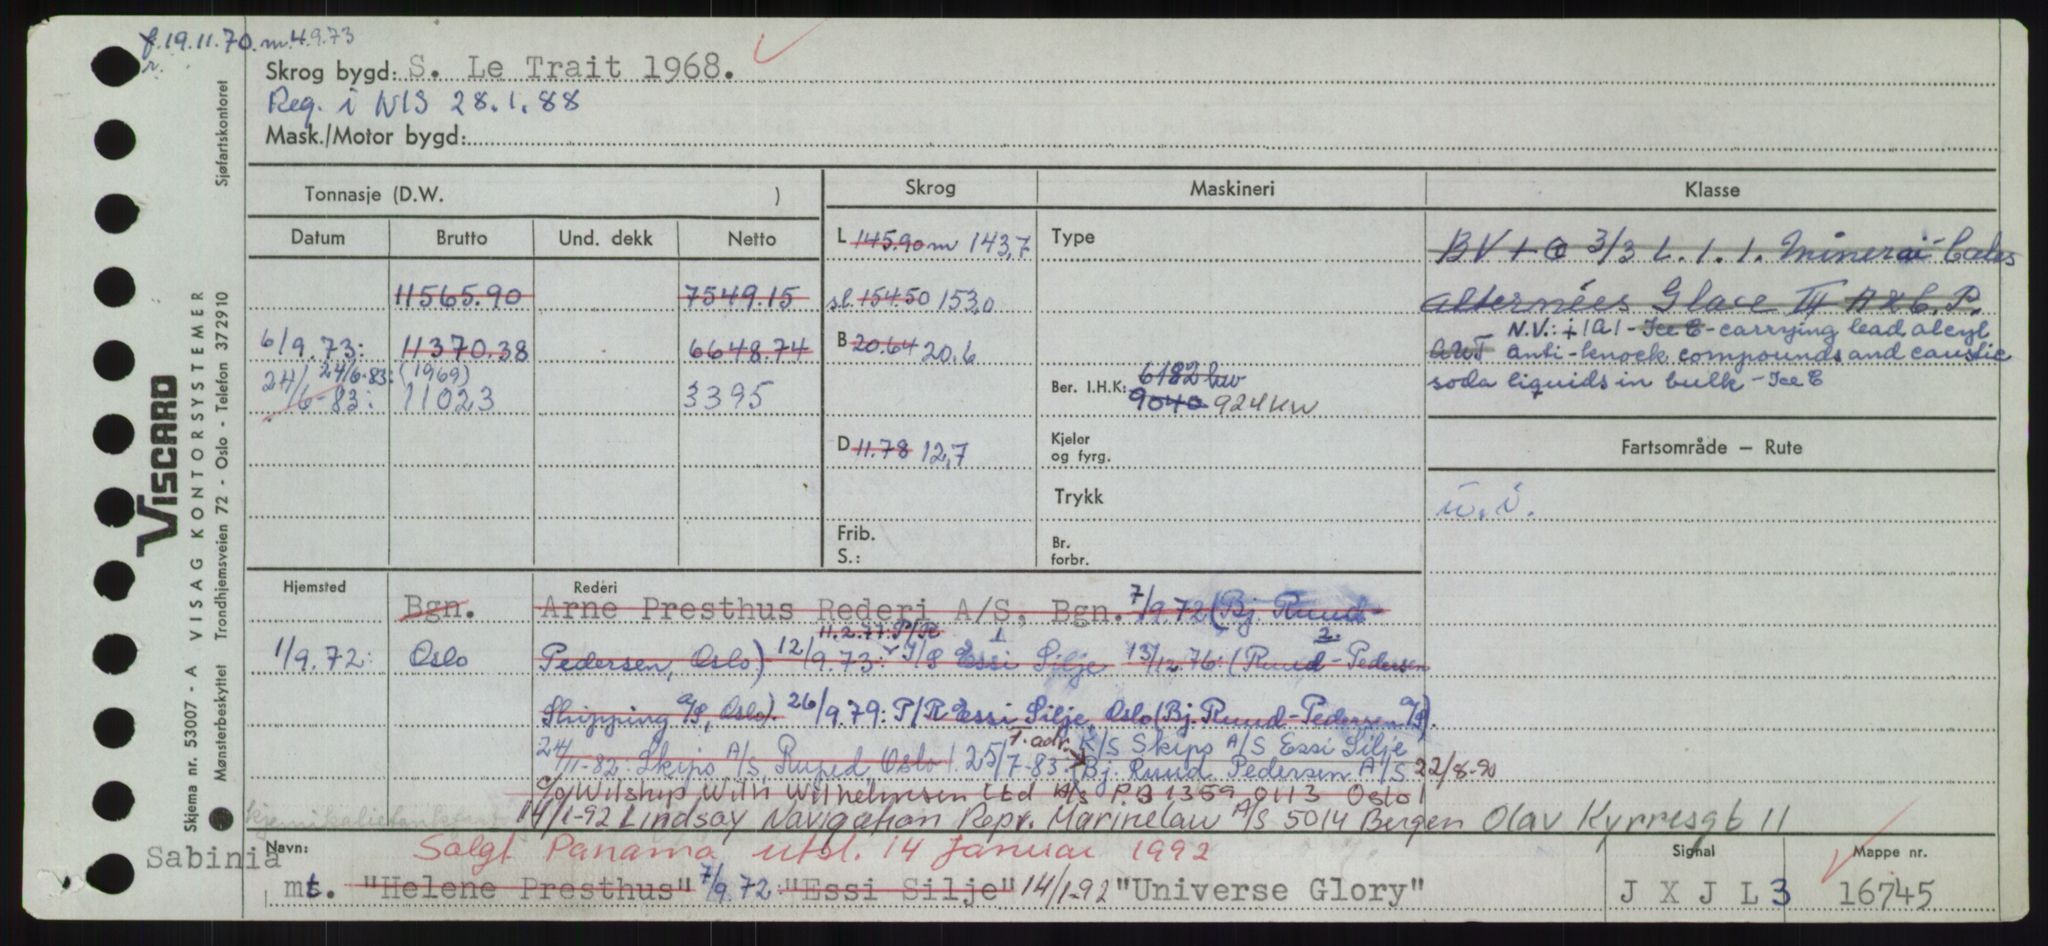 f.19.11.70. m.4.9.73
r.
Skrog bygd: S. Le Trait 1968.
Reg. i NIS 28.1.88
Mask./Motor bygd:
Tonnasje (D.W. )
Skrog
Maskineri
Klasse
Datum
Brutto
Und. dekk
Netto
L 145.90 m 143,7
Type
BV + 3/3 L. 1. 1. Minerai-Cales
11565.90
7549.15
s.l. 154.50 153,0
alternées Glace III A & C. P.
6/9.73:
11370.38
6648.74
B 20.64 20,6
N.V.: + 1A1 - Ice C - carrying lead alcyl
anti-knock compounds and caustic
soda liquids in bulk - Ice C
24/6-83: (1969)
24/6-83: 11023
3395
Ber. I.H.K: 6182 kw
9040 924 KW
D 11.78 12,7
Kjeler
og fyrg.
Fartsområde — Rute
Trykk
u.i.
Frib.
S.:
Br.
forbr.
Hjemsted
Rederi
Bgn.
Arne Presthus Rederi A/S, Bgn. 7/9.72 (Bj. Ruud-
11.2.77: P/R
1/9.72: Oslo
Pedersen, Oslo) 12/9.73: I/S Essi Silje 13/12.76: (Ruud-Pedersen
Shipping A/S, Oslo). 26/9.79: P/R Essi Silje, Oslo (Bj. Ruud-Pedersen A/S).
1. adr. K/S Skips A/S Essi Silje
24/1-82: Skips A/S Ruped, Oslo). 25/7-83: (Bj. Ruud Pedersen A/S 22/8-90
c/o Wilship Wilh Wilhelmsen Ltd A/S P.B 1359 0113 Oslo)
kjemikalietankfart
14/1-92 Lindsay Navigation Repr. Marinelaw A/S 5014 Bergen Olav Kyrresgt 11
Sabinia
Navn:
Solgt Panama utsl. 14 Januar 1992
Signal
Mappe nr.
mt. "Helene Presthus" 7/9.72: "Essi Silje" 14/1-92 "Universe Glory"
J X J L 3
16745
VISCARD
Skjema nr. 53007 - A VISAG KONTORSYSTEMER
Mønsterbeskyttet Trondhjemsveien 72 - Oslo - Telefon 372910 Sjøfartskontoret